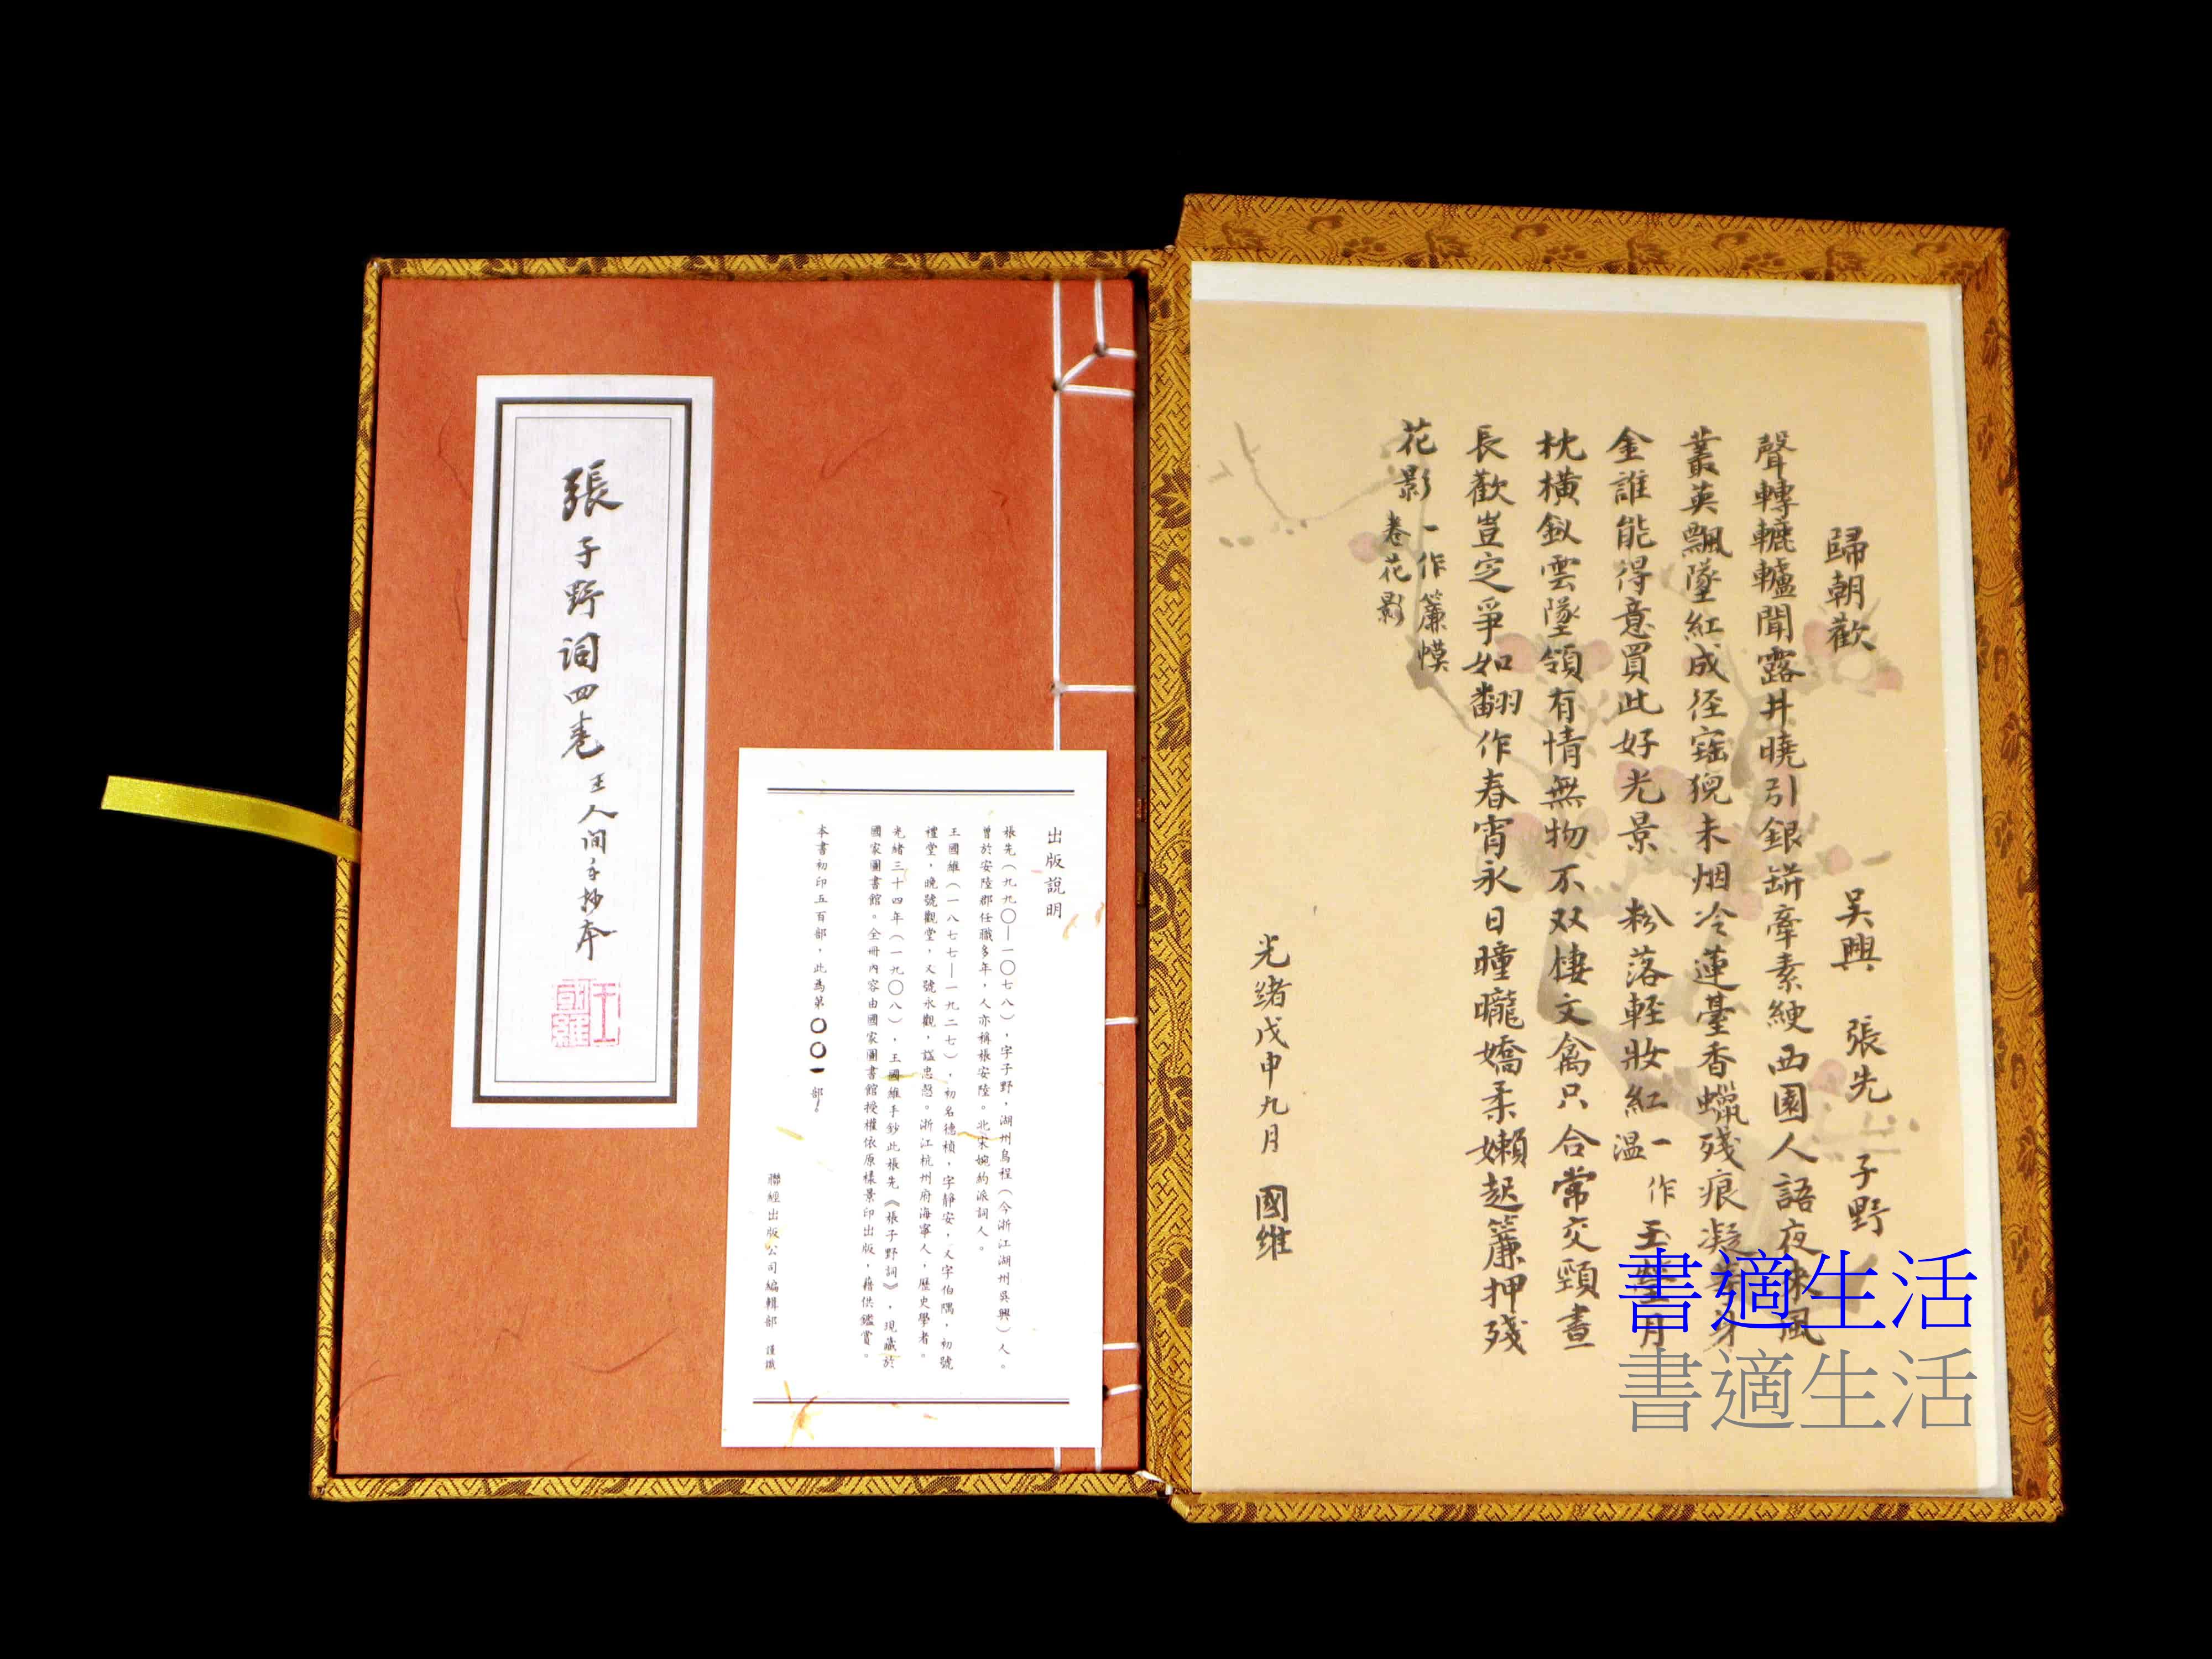 歸朝歡　吳興　張先　子野
聲轉轆轤聞露井曉引銀缾牽素綆西園人語夜來風
叢英飄墜紅成徑寳猊未烟冷蓮臺香蠟殘痕凝等身
金誰能得意買此好光景　粉落輕妝紅溫一作玉瑩月
枕橫釵雲墜領有情無物不双棲文禽只合常交頸晝
長歡豈定爭如翻作春宵永日曈曨嬌柔嬾起簾押殘
花影一作簾幙
卷花影
光緒戊申九月　國維
張子野词四卷 王人间手抄本
王國維
出版說明
張先（九九〇—一〇七八），字子野，湖州烏程（今浙江湖州吳興）人。
曾於安陸郡任職多年，人亦稱張安陸。北宋婉約派詞人。
王國維（一八七七—一九二七），初名德楨，字靜安，又字伯隅，初號
禮堂，晚號觀堂，又號永觀，諡忠愨。浙江杭州府海寧人，歷史學者。
光緒三十四年（一九〇八），王國維手鈔此張先《張子野詞》，現藏於
國家圖書館。全冊內容由國家圖書館授權依原樣景印出版，藉供鑑賞。
本書初印五百部，此為第〇〇一部。
聯經出版公司編輯部　謹識
書適生活
書適生活